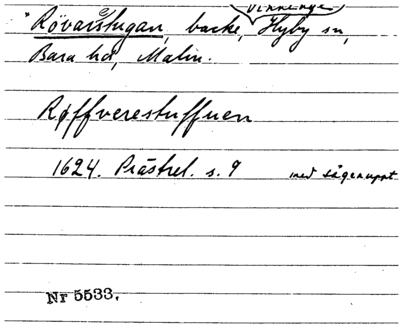 Vinninge
*Rövarstugan, backe, Hyby sn,
Bara hd, Malm.
Røffverestuffuen
1624. Prästrel. s. 9 med sägenuppt
Nr 5533.